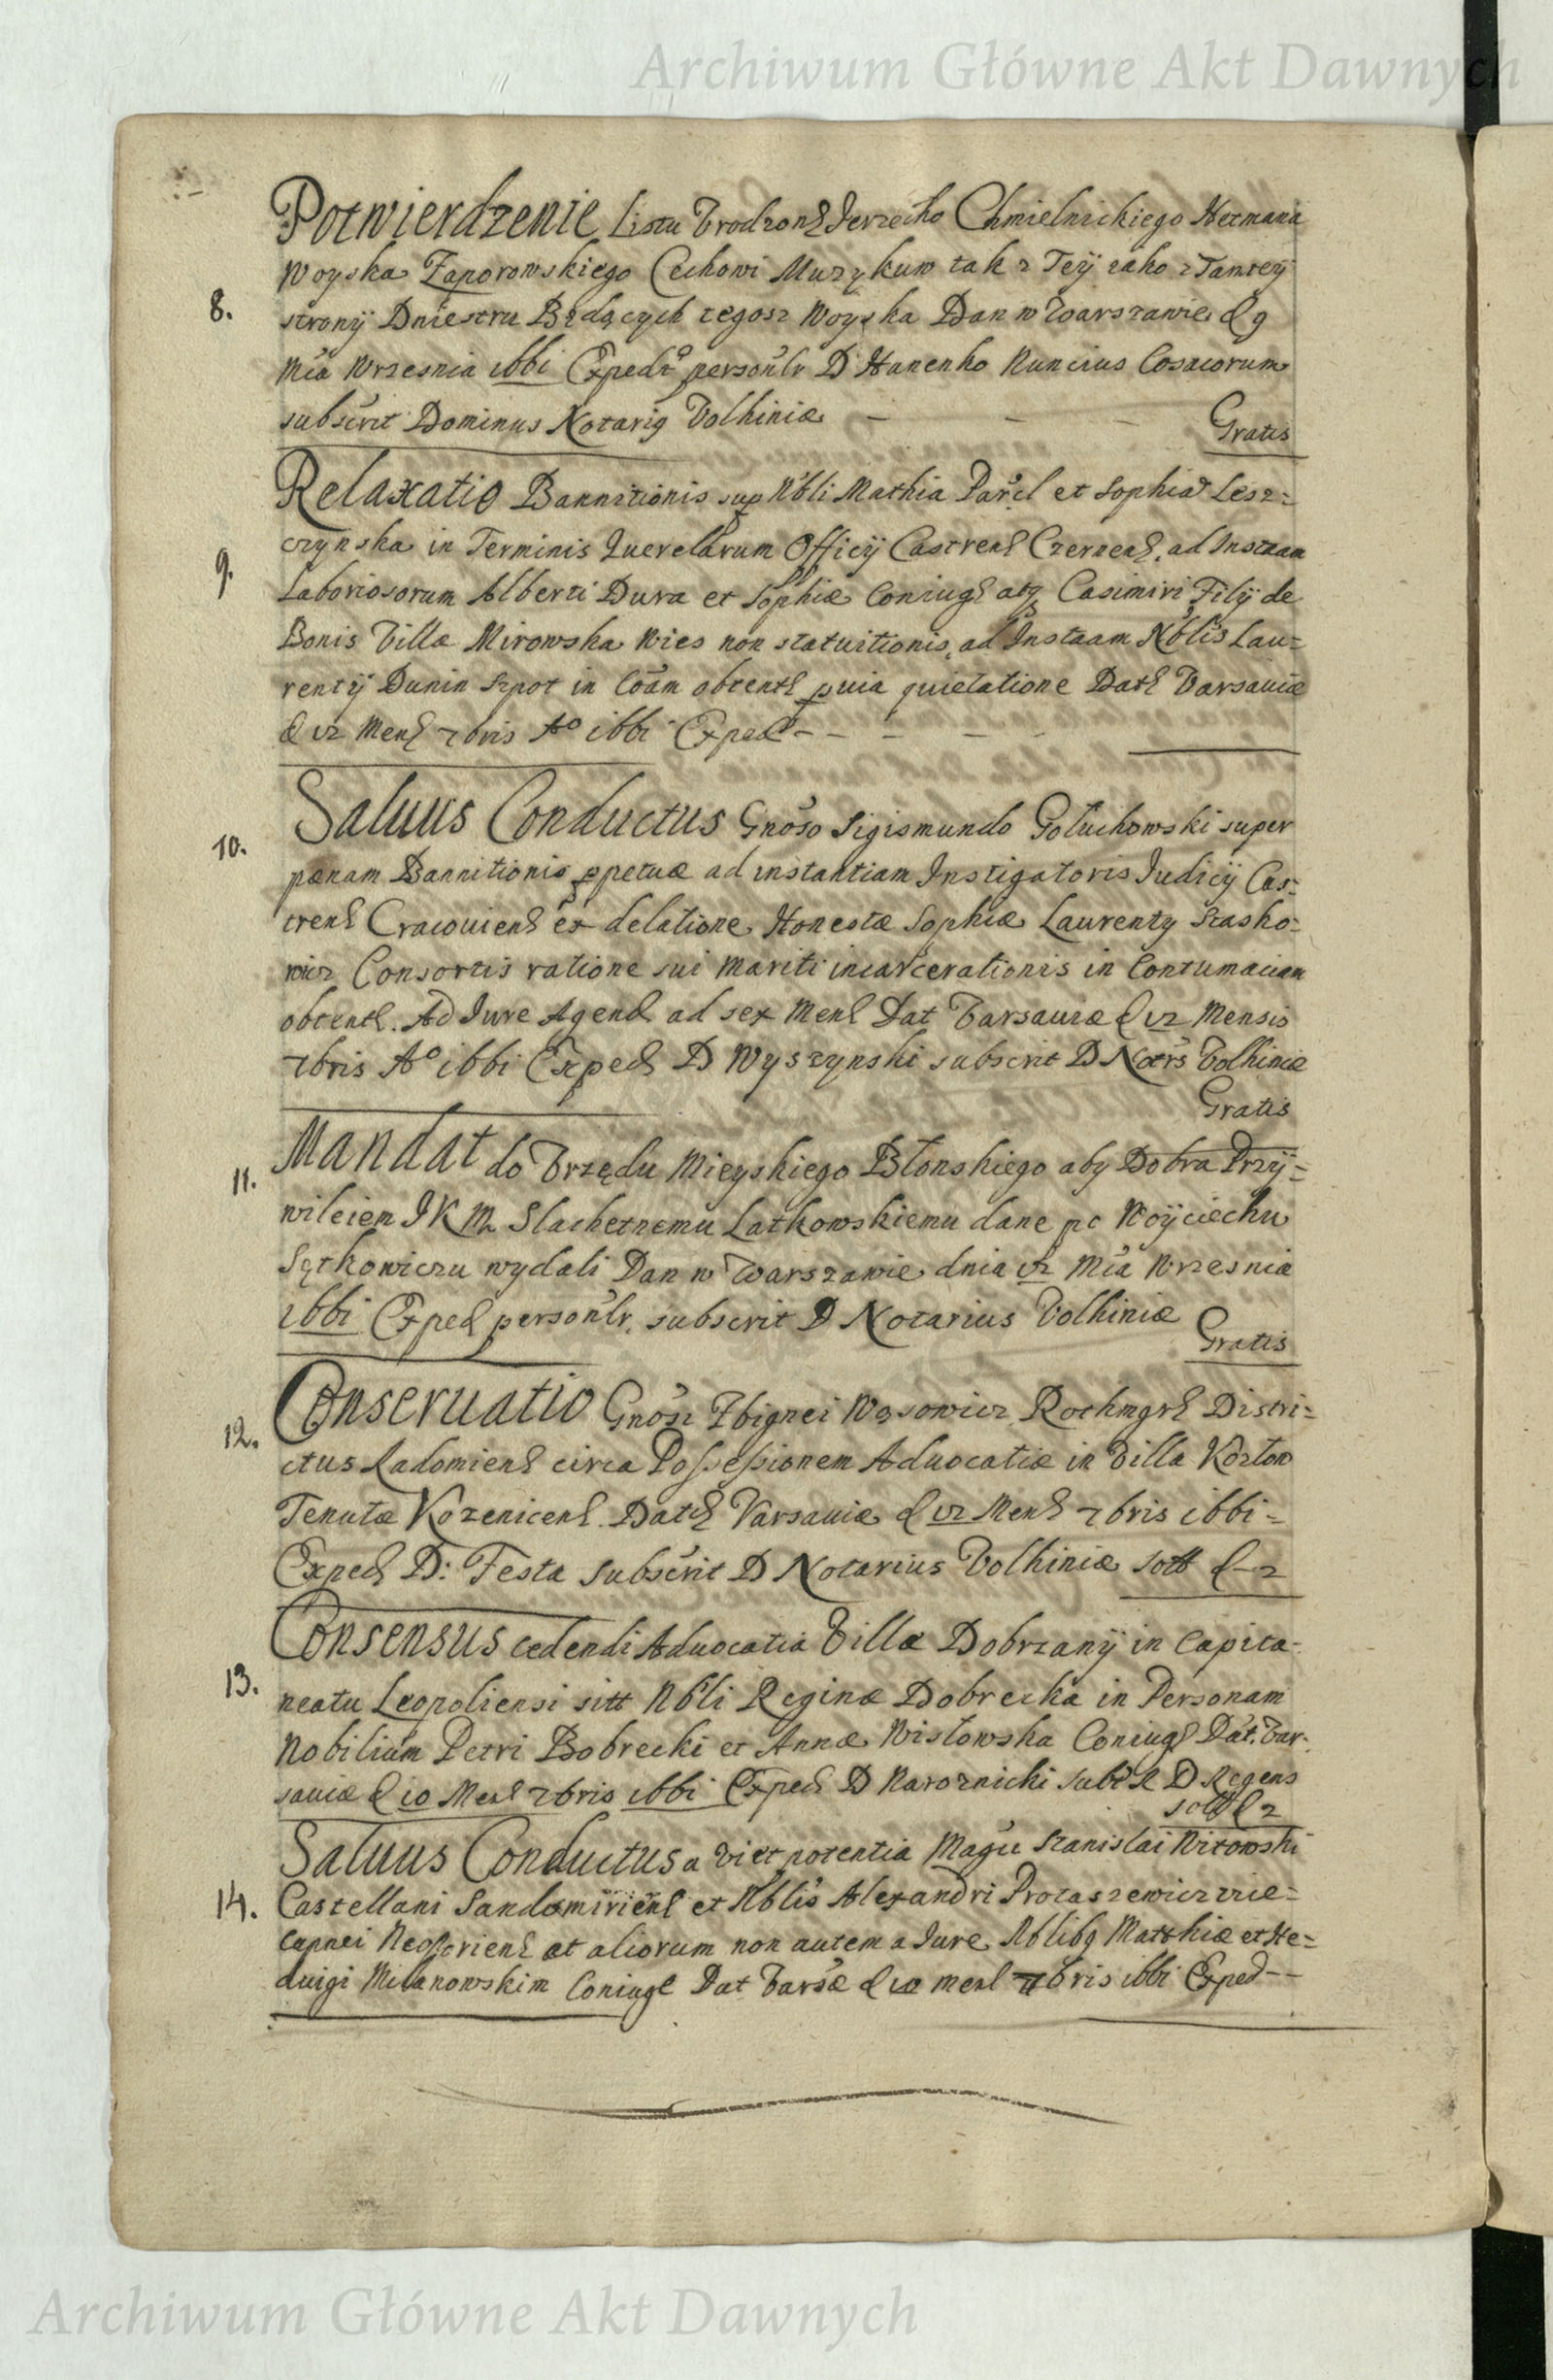 Archiwum Główne Akt Dawnych
Potwierdzenie Listu Vrodzonẽ Jerzeho Chmielnickiego Hetmana
Woyska Zaporowskiego Cechowi Muzykuw tak z Teÿ iako z Tamteÿ
8. stronÿ Dniestru Będących tegosz Woyska Dan w Warszawie d 9
Mca Wrzesnia 1661 Exped person̑lr D Hanenko Nuncius Cosacorum
subscrit Dominus Notarig Volhiniæ
Gratis
Relaxatio Bannitionis sup Nbli Mathia et Sophia Lesz=
czynska in Terminis Querelarum Officÿ Castren Czernen. ad Instaam
9. Laboriosorum Alberti Dura et Sophiæ Coniug atq Casimiri Filÿ de
Bonis Villæ Mirowska Wies non statuitionis, ad Instaam Nblis Lau=
rentÿ Dunin Szpot in Coam obtent puia quietatione Dat Varsauiæ
d 12 Men 7bris Aº 1661 Exped
10. Saluus Conductus Gnoso Sigismundo Gołuchowski super
pænam Bannitionis ppetuæ ad instantiam Instigatoris Judicÿ Cas=
tren Cracouien ex delatione Honestæ Sophiæ Laurenty Stasko=
wicz Consortis ratione sui Mariti incarcerationis in Contumaciam
obtent. Ad Jure Agend ad sex Men Dat Varsauiæ d 12 Mensis
7bris Aº 1661 Exped D Wyszynski subscrit D Notrs Volhiniæ
Gratis
11. Mandat do Vrzędu Mieyskiego Błonskiego aby Dobra Przÿ=
wileiem JKM Slachetnemu Latkowskiemu dane po Woÿciechu
Sętkowiczu wydali Dan w Warszawie dnia 12 Mca Wrzesnia
1661 Exped person̑lr subscrit D Notarius Volhiniæ
Gratis
12. Conseruatio Gnosi Zbignei Wąsowicz Rothmgr Distri=
ctus Radomien circa Possessionem Aduocatiæ in Villa
Tenutæ Kozenicen. Dat Varsauiæ d 12 Men 7bris 1661 =
Exped D: Testa Subscrit D Notarius Volhiniæ sott d - 2
Consensus cedendi Aduocatia Villæ Dobrzanÿ in Capita=
13. neatu Leopoliensi sitt Nbli Reginæ Dobrecka in Personam
Nobilium Petri Bobrecki et Annæ Wisłowska Coniug Dat. Var-
sauiæ d 10 Men 7bris 1661 Exped D Nawoznicki D Regens
sott d 2
Saluus Conductus a vi et potentia Magci Stanislai Witowski
14. Castellani Sandomirien et Nblis Alexandri Protaszewicz vice=
capnei et aliorum non autem a Jure Nblibq Matthiæ et He=
duigi Milanowskim Coniug Dat Varsæ d 10 men 7bris 1661 Exped - -
Archiwum Główne Akt Dawnych